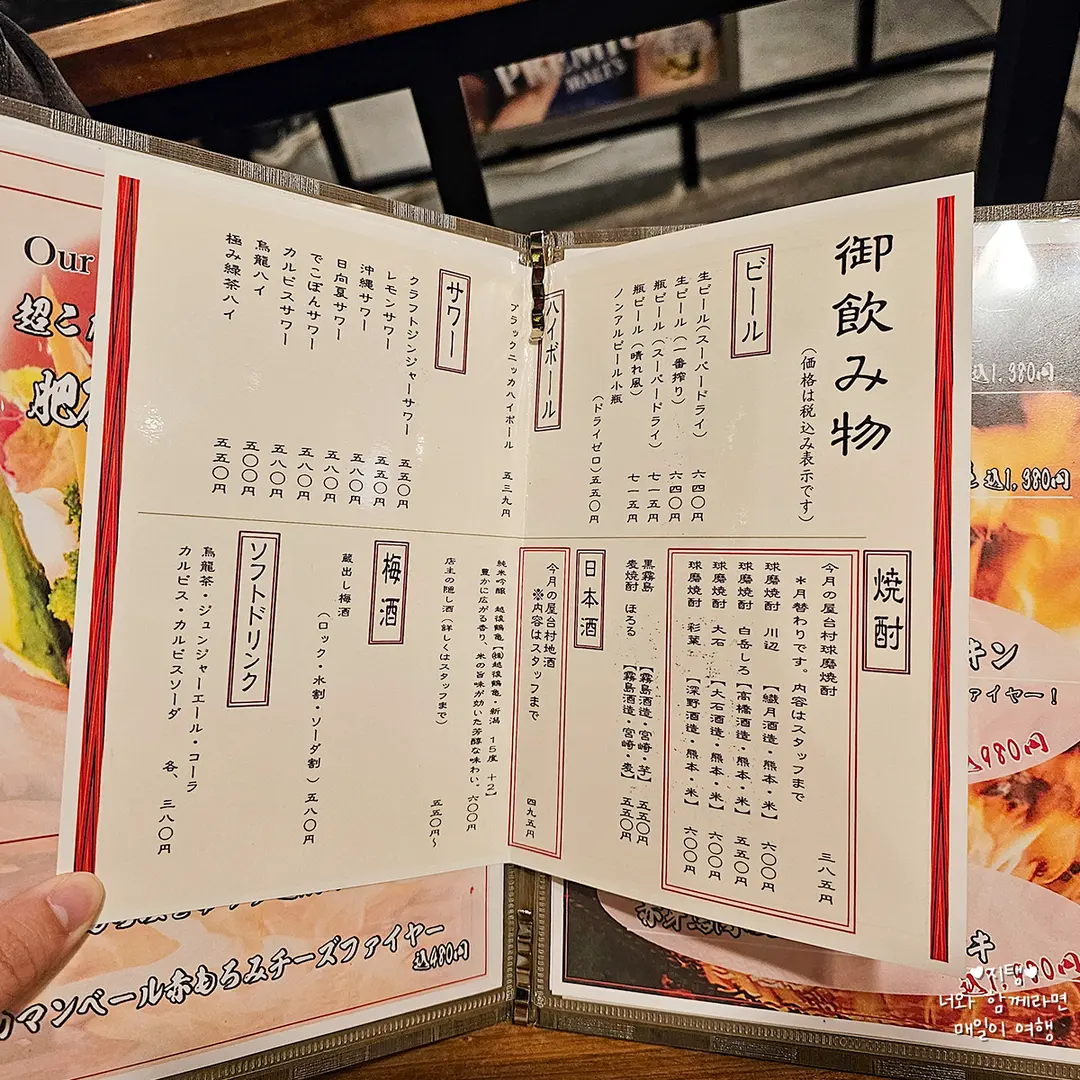 御飲み物
(価格は税込み表示です)
ビール
生ビール(スーパードライ) 六四〇円
生ビール(一番搾り) 六四〇円
瓶ビール(スーパードライ) 七一五円
瓶ビール(晴れ風) 七一五円
ノンアルビール小瓶
(ドライゼロ)五五〇円
ハイボール
ブラックニッカハイボール 五三九円
サワー
クラフトジンジャーサワー 五五〇円
レモンサワー 五五〇円
沖縄サワー 五八〇円
日向夏サワー 五八〇円
でこぽんサワー 五八〇円
カルピスサワー 五八〇円
烏龍ハイ 五〇〇円
極み緑茶ハイ 五五〇円
焼酎
今月の屋台村球磨焼酎 三八五円
*月替わりです。内容はスタッフまで
球磨焼酎 川辺 【繊月酒造・熊本・米】 六〇〇円
球磨焼酎 白岳しろ 【高橋酒造・熊本・米】 五五〇円
球磨焼酎 大石 【大石酒造・熊本・米】 六〇〇円
球磨焼酎 彩葉 【深野酒造・熊本・米】 六〇〇円
黒霧島 【霧島酒造・宮崎・芋】 五五〇円
麦焼酎 ほろる 【霧島酒造・宮崎・麦】 五五〇円
日本酒
今月の屋台村地酒
※内容はスタッフまで 四九五円
純米吟醸 越後鶴亀【㈱越後鶴亀・新潟 15度 +2】
豊かに広がる香り、米の旨味が効いた芳醇な味わい。 六〇〇円
店主の隠し酒(詳しくはスタッフまで) 五五〇円~
梅酒
蔵出し梅酒
(ロック・水割・ソーダ割) 五八〇円
ソフトドリンク
烏龍茶・ジンジャーエール・コーラ
カルピス・カルピスソーダ 各、三八〇円
Our
超こ
肥
マンベール赤もろみチーズファイヤー
込480円
込1,380円
込1,380円
キン
ァイヤー!
込980円
キ
PREMIUM
♥지탬♥
너와 함께라면
매일이 여행